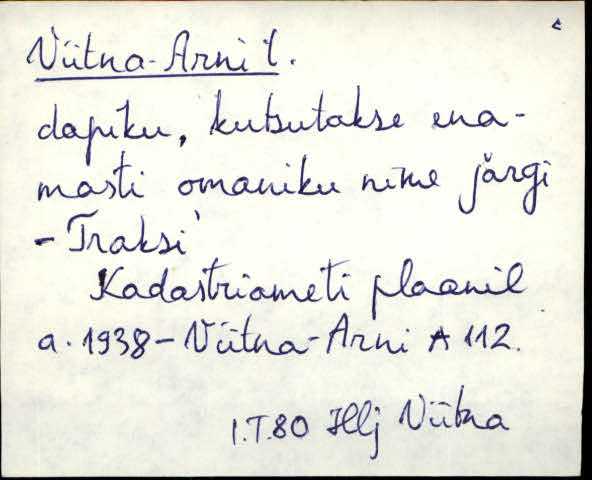 Viitna-Arni t.
dapiku, kutsutakse ena-
masti omaniku nime järgi
- Traksi'
Kadastriameti plaanil
a. 1938 - Viitna-Arni A 112.
I.T.80 Hlj Viitna